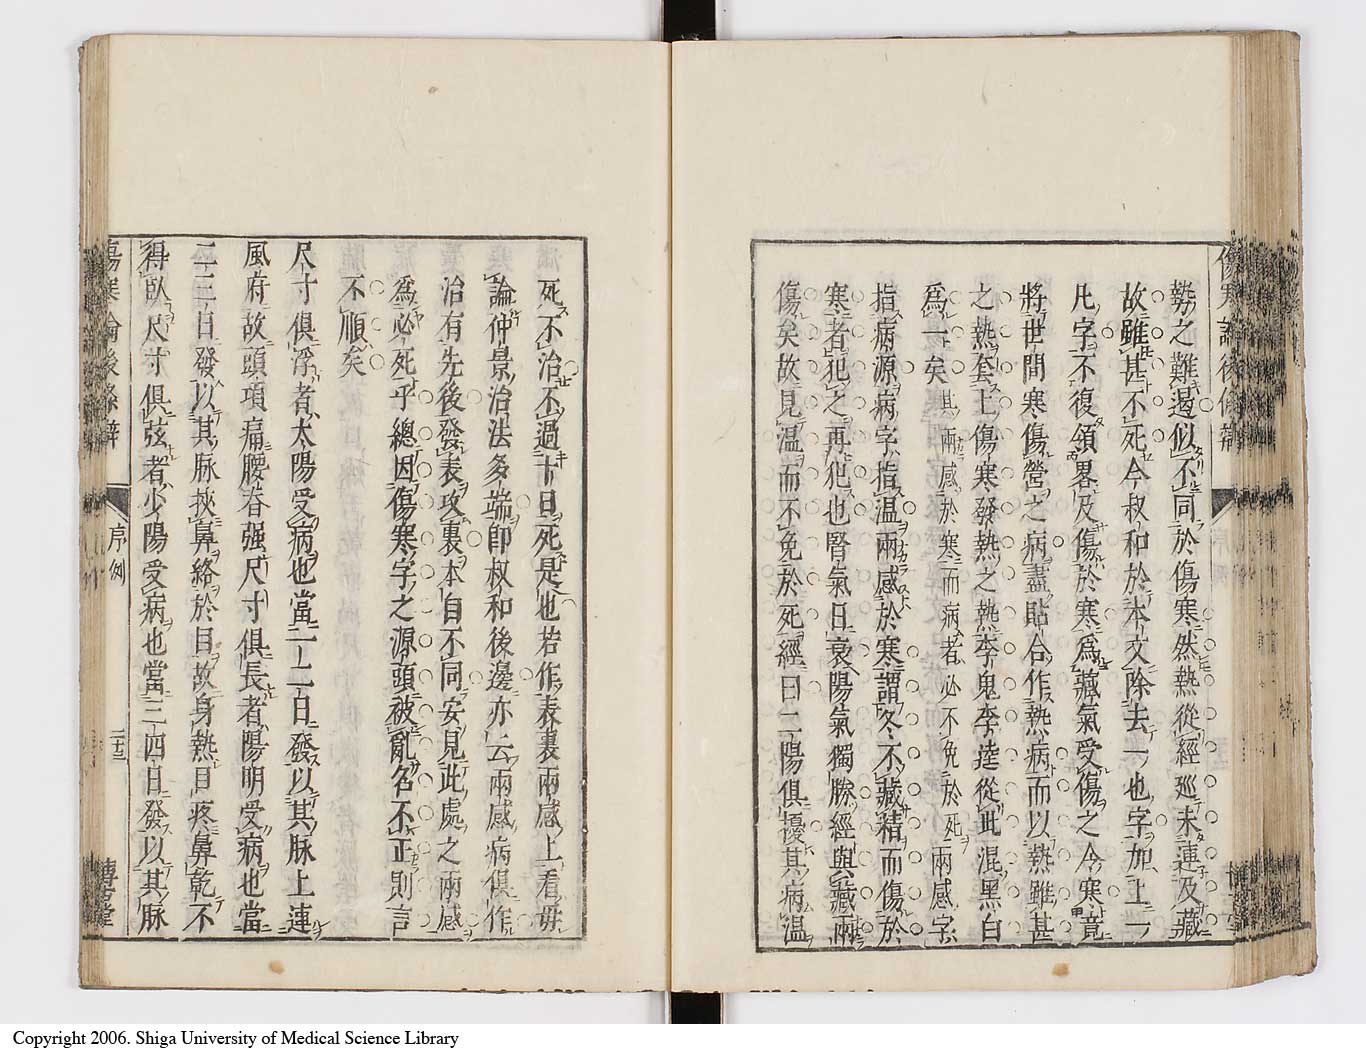 勢之難遏似不同於傷寒然熱從經廵未連及藏
故雖甚不死今叔和於本文除去一也字加上一
凡字不復領畧及傷於寒爲藏氣受傷之今寒竟
將世間寒傷營之病盡貼合作熱病而以熱雖甚
之熱套上傷寒發熱之熱李鬼李逵從此混黑白
爲一矣其兩感於寒而病者必不免於死兩感字
指病源病字指温兩感於寒謂冬不藏精而傷於
寒者犯之再犯也腎氣日衰陽氣獨勝經與藏兩
傷矣故見温而不免於死經曰二陽俱擾其病温
死不治不過十日死是也若作表裏兩感上看毋
論仲景治法多端即叔和後邊亦云兩感病俱作
治有先後發表攻裏本自不同安見此處之兩感
爲必死乎總因傷寒字之源頭被亂名不正則言
不順矣
尺寸俱浮者太陽受病也當一二日發以其脉上連
風府故頭項痛腰脊强尺寸俱長者陽明受病也當
二三日發以其脉挾鼻絡於目故身熱目疼鼻乾不
得臥尺寸俱弦者少陽受病也當三四日發以其脉
傷寒論後條辯
序例
二十三
博古堂
Copyright 2006. Shiga University of Medical Science Library